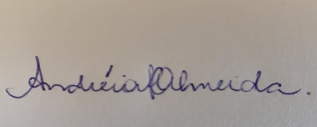 Andréia Almeida.